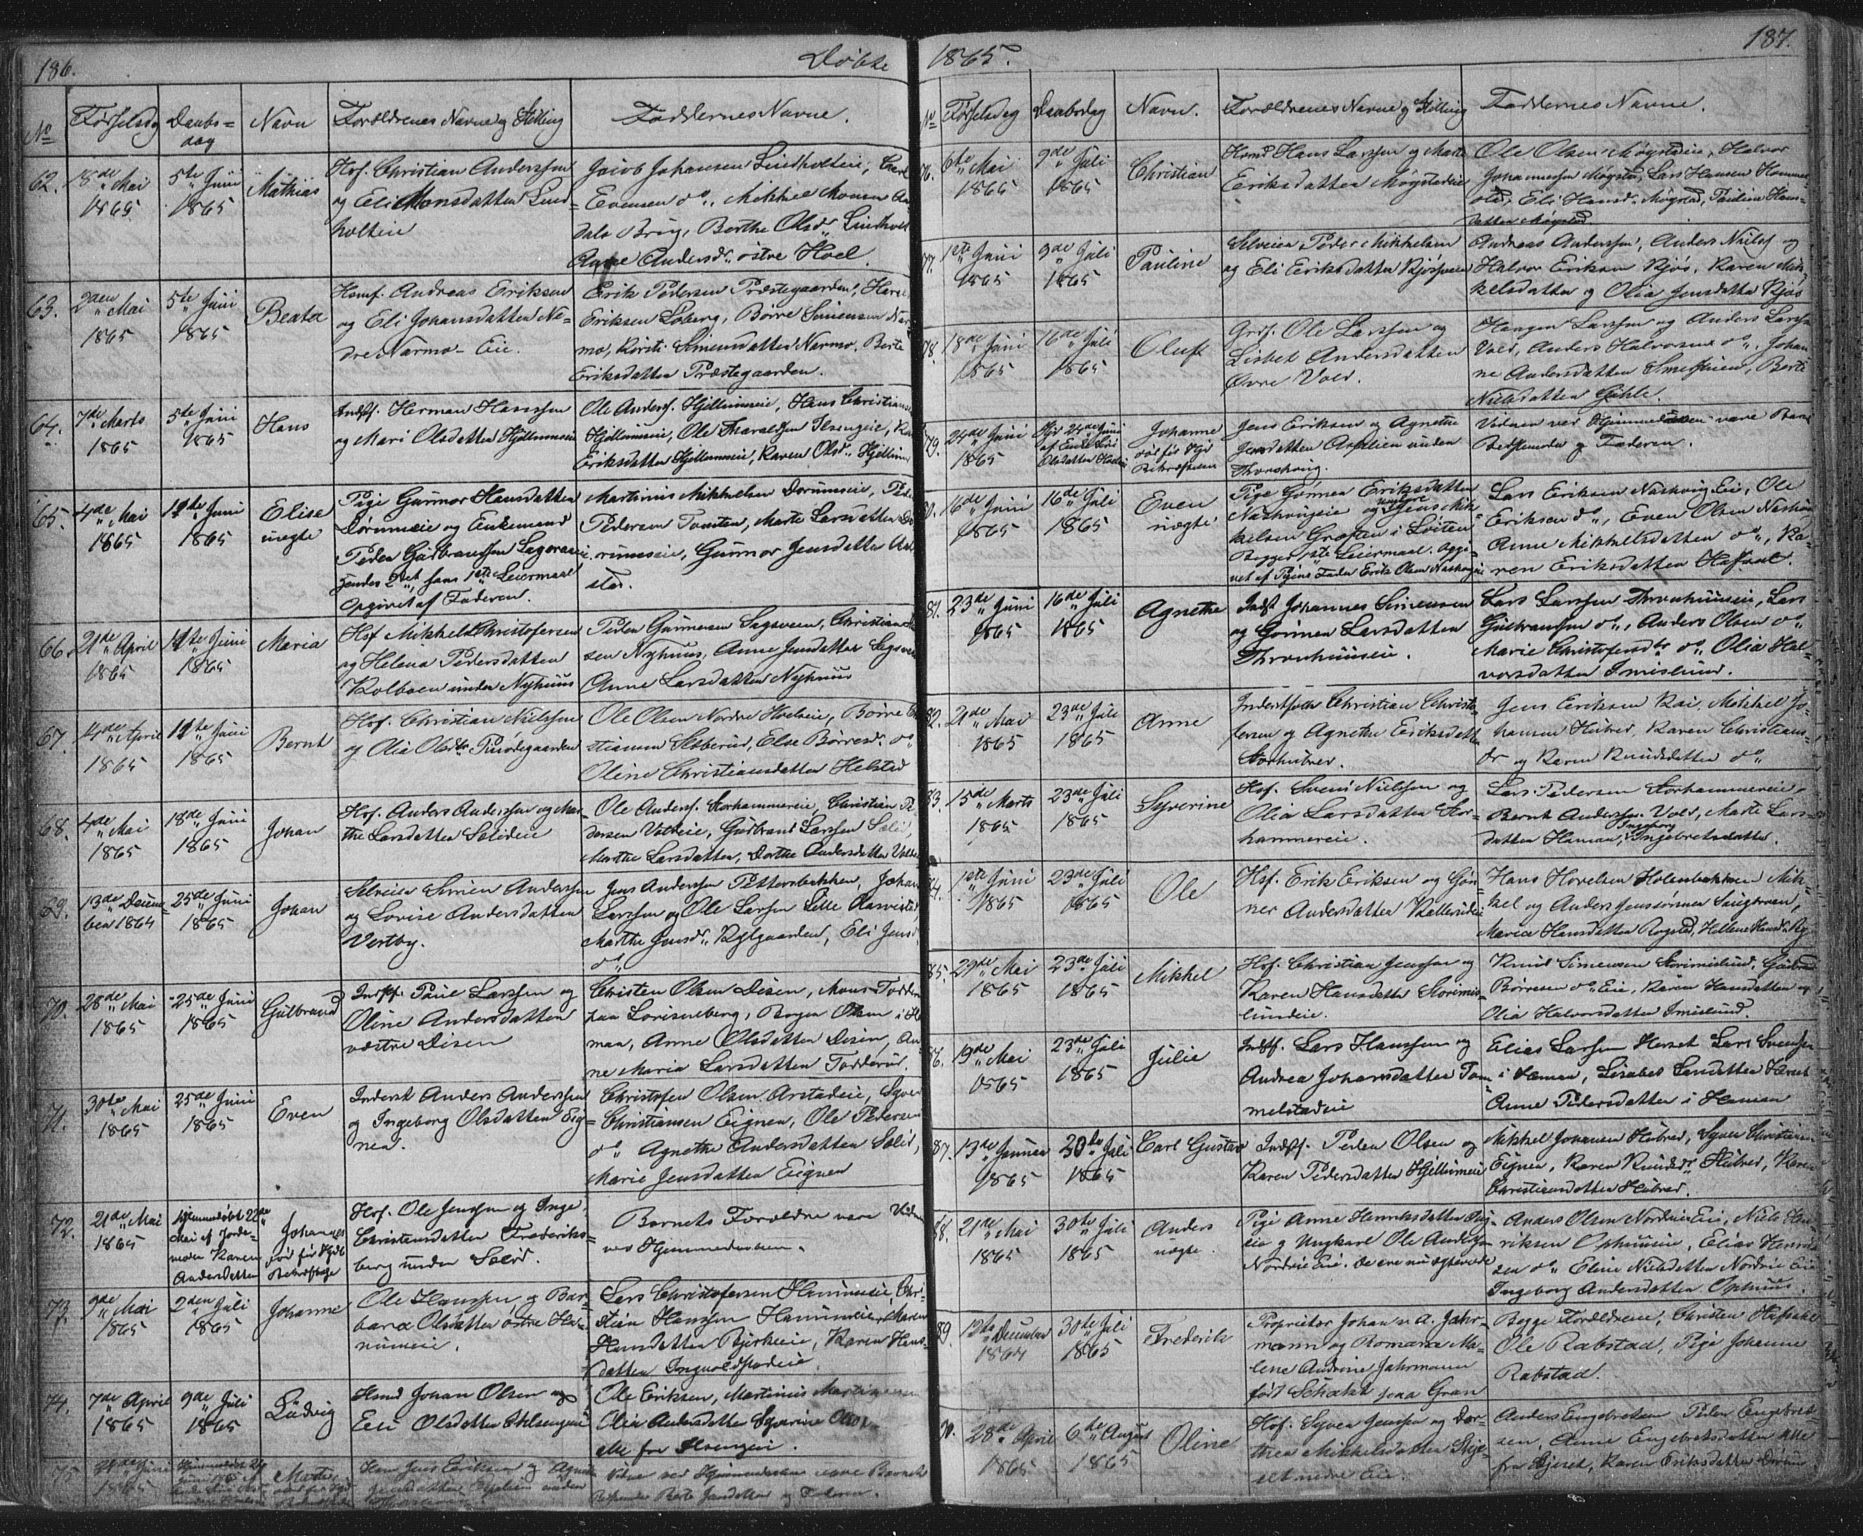 186.
Døbte
No
Fødselsdag
Daabs=
dag
Navn
Forældrenes Navne og Stilling
Faddernes Navne.
62.
18de Mai
1865
5te Juni
1865
Mathias
Hof. Christian Anderssen
og Eli Monsdatten Lind=
holteie
Jacob Johansen Lindholteie, Carl
Evensen do., Mikkel Monsen
Brug, Berthe Olsdr. Lindhol
Anne Andersdr. østre Hoel.
63.
2den Mai
1865
5te Juni
1865
Beata
Husmf. Andreas Eriksen
og Eli Johansdatten Ne=
dre Narmo-Eie.
Erik Pedersen Præstegaarden, Hans
Eriksen Løberg, Børre Simensen Nar=
mo, Kirsti Simensdatten Narmo, Berte
Eriksdatten Præstegaarden.
64.
7de Marts
1865
5te Juni
1865
Hans
Indsf. Herman Hanssen
og Mari Olsdatten Hjellumseie
Ole Anderss. Hjellumseie, Hans Christians
Hjellumseie, Ole Haraldsen Ilsengeie,
Eriksdatten Hjellumseie, Karen Olsdr. Hjellum
65.
4de Mai
1865
11te Juni
1865
Elise
uægte
Pige Gunnor Hansdatten
Dorumseie og Enkemand
Peder Gulbrandsen
hendes 2det, hans 1ste Leiermaal
Opgivet af Faderen.
Martinus Mikkelsen Dorumseie, Peder
Pedersen Tomten, Marte Larsdatten Do
rumseie, Gunnor Jensdatten
stad.
66.
21de April
1865
11te Juni
1865
Maria
Hof Mikkel Christofersen
og Helena Pedersdatten
Kolboen under Nyhuus
Peder Gunnersen Sagsveen, Christian
sen Nyhuus, Anne Jensdatten Sagsveen
Anne Larsdatten Nyhuus
67.
14de April
1865
11te Juni
1865
Bernt
Hof. Christian Nielsen
og Olia Olsdtr. Finsdegaarden
Ole Olsen Nordre Hveleie, Børre
stiansen Sæterud, Else Børresdr. do
Oline Christiansdatten Helstad
68.
4de Mai
1865
18de Juni
1865
Johan
Hof. Anders Anderssen og Mar=
the Larsdatten Solideie
Ole Anderss. Storhammereie, Christian Pe=
dersen Voldeie, Gulbrand Larssen Solid,
Marthe Larsdatten, Dorthe Andersdatten
69.
13de Decem=
ber 1864
25de Juni
1865
Johan
Selveier Simen Anderssen
og Lovise Andersdatten
Vestby.
Jens Anderssen Pettersbakken, Johan
Larssen og Ole Larsen Lille
Marthe Jensdr. Kylgaarden, Eli Jensd.
do
70.
28de Mai
1865
25de Juni
1865
Gulbrand
Indsf. Paul Larssen og
Oline Andersdatten
væstre Disen
Christen Olsen Disen, Mons Fodder
paa Lovisenberg, Roger Olsen i H
man, Anne Olsdatten Disen, An=
ne Maria Larsdatten Fodderud.
71.
30te Mai
1865
25de Juni
1865
Even
Inderst Anders Anderssen
og Ingeborg Olsdatten Eig=
nen.
Christofer Olsen Arstadeie, Syver
Christiansen Eignen, Ole Pedersen
do Agnethe Andersdatten Solid,
Marie Jensdatten Eignen
72.
21de Mai
1865
Hjemmedøbt 22de
Mai af Jorde=
moder Karen
Andersdatten
Johannes
død før Daab
Bekræftelse
Hof. Ole Jenssen og Inge
Christiansdatten Frederiks=
berg under Solid.
Barnets Forældre vare Vidne
ved Hjemmedaaben.
73.
9de Mai
1865
2den Juli
1865
Johanne
Ole Hanssen og Bar=
bara Olsdatten østre Ha=
numeie.
Lars Christofersen Hanumseie, Chri=
stian Hanssen Hanumseie, Maren
Hansdatten Bjerkeeie, Karen Hans=
datten Ingvoldstadeie.
74.
7de April
1865
9de Juli
1865
Ludvig
Husmd Johan Olsen og
Eli Olsdatten Ilsengeie
Ole Eriksen, Martinus Martin
Olia Andersdatten Syverine Olsd.
alle fra Ilsengeie.
75.
24de Juni
1865
Marte
Jens Eriksen og Agnete
Jensdatten under
Vidner ved Hjemmedaaben vare Barnets
Berte Jensdatten og Faderen.
1865.
187.
No
Fødselsdag
Daabsdag
Navn.
Forældrenes Navne og Stilling
Faddernes Navne.
76.
6te Mai
1865
9de Juli
1865
Christian
Husmd Hans Larssen og Marte
Eriksdatten Møystadeie
Ole Olsen Møystadeie, Halvor
Johannesen Møystad, Lars Hansen Hommer=
stad, Eli Hansd. Møystad, Pauline Hans=
datten Møystad
77.
1ste Juni
1865
9de Juli
1865
Pauline
Selveier Peder Mikkelsen
og Eli Eriksdatten Kjøsveen
Andreas Anderssen, Anders Nielss og
Halvor Eriksen Kjøs, Karen Mik=
kelsdatten og Olia Jensdatten Kjøs
78.
18de Juni
1865
16de Juli
1865
Oluf
Grdf. Ole Larssen og
Lisbet Andersdatten
Øvre Vold.
Haagen Larssen og Anders Larsen
Vold, Anders Halvorsen do, Johan
ne Andersdatten Smidsrueie, Berte
Nielsdatten Gihle.
79.
24de Juni
1865
Hjd. 24de Juni
af
Olsdatten
Johanne
død før Hjd
Bekræftelsen
Jens Eriksen og Agnethe
Jensdatten Asplien under
Thorshoug.
Vidner ved Hjemmedaaben vare
og Faderen.
80.
16de Juni
1865
16de Juli
1865
Even
uægte
Pige Gørnen Eriksdatten
Nashougeie og Ungkarl Jens Mik
kelsen Grøften i Løiten
Begges 1ste Leiermaal. Opgi=
vet af Pigens Fader Erik Olsen Nashougeie
Lars Eriksen Nashoug Eie, Ole
Eriksen do, Even Olsen Nashoug
Anne Mikkelsdatten do, Ka=
ren Eriksdatten Hafsal.
81.
23de Juni
1865
16de Juli
1865
Agnethe
Indst Johannes Simensen
og Gørnen Larsdatten
Thronhuuseie.
Lars Larssen Thronhuuseie, Lars
Gulbransen do, Anders Olsen do
Marie Christofersdtr do, Olia Hal=
vorsdatten Imislund.
82.
21de Mai
1865
23de Juli
1865
Anne
Inderstfolk Christian Christo=
fersen og Agnethe Eriksdatten
Storhubred.
Jens Eriksen Kai, Mikkel Jo=
hansen Hubred, Karen Christians=
dr og Karen Knudsdatten do
83.
15de Marts
1865
23de Juli
1865
Syverine
Hof. Svend Nielsen og
Olia Larsdatten Stor=
hammereie.
Lars Pedersen Storhammereie,
Bernt Anderssen Vold, Marte Lars=
datten Hamar, Ingeborg Ingebretsdatten
84.
1ste Juni
1865
23de Juli
1865
Ole
Hof. Erik Eriksen og Gør=
ner Andersdatten Kallerudeie
Hans Hovelsen Holenbakken Mik=
kel og Anders Jenssønner
Maria Hansdatten Rogstad, Hellene Hansd.
85.
29de Mai
1865
23de Juli
1865
Mikkel
Hof. Christian Jenssen og
Karen Hansdatten Storimis=
lundeie.
Knud Simensen Storimislund, Gulbran
Børresen do Eie, Karen Hansdatten og
Olia Halvorsdatten Imislund.
86.
19de Mai
1865
23de Juli
1865
Julie
Indsf. Lars Hanssen og
Andrea Johannsdatten Tom
melstadeie
Elias Larsen Herset Lars Svensen
i Hamar, Lisabet Larsdatten Herset
Anne Pedersdatten i Hamar
87.
13de Januar
1865
30te Juli
1865
Carl Gustav
Indsf. Peder Olsen og
Karen Pedersdatten Hjellumeie
Mikkel Johansen Hubred, Syver Christians
Eignen, Karen Knudsdr. Hubred, Karen
Christiansdatten Hubred.
88.
21de Mai
1865
30te Juli
1865
Anders
uægte.
Pige Anne Henriksdatten
eie og Ungkarl Ole Anderssen
Nordvie Eie. De ere nu ægteviede
Anders Olsen Nordvie Eie, Niels Hen
riksen Ophuuseie, Elias Henrik
sen do Eline Nielsdatten Nordvie Eie
Ingeborg Andersdatten Ophuus.
89
13te December
1864
30te Juli
1865
Frederik
Proprietør Johan v. A. Jahr=
mann og Romania Ma=
lene Andrine Jahrmann
født Schakt paa Gran
Begge Forældrene, Christen Hafsahl
Ole Rabstad, Pige Johanne
Rabstad.
90.
28de April
1865
6te August
1865
Oline
Hof. Syver Jenssen og Dor=
thea Mikkelsdatten Skje=
set nedre Eie.
Anders Engebretsen Peder Engebret=
sen, Anne Engebretsdatten alle
fra Skjeset, Karen Eriksdatten Dorum